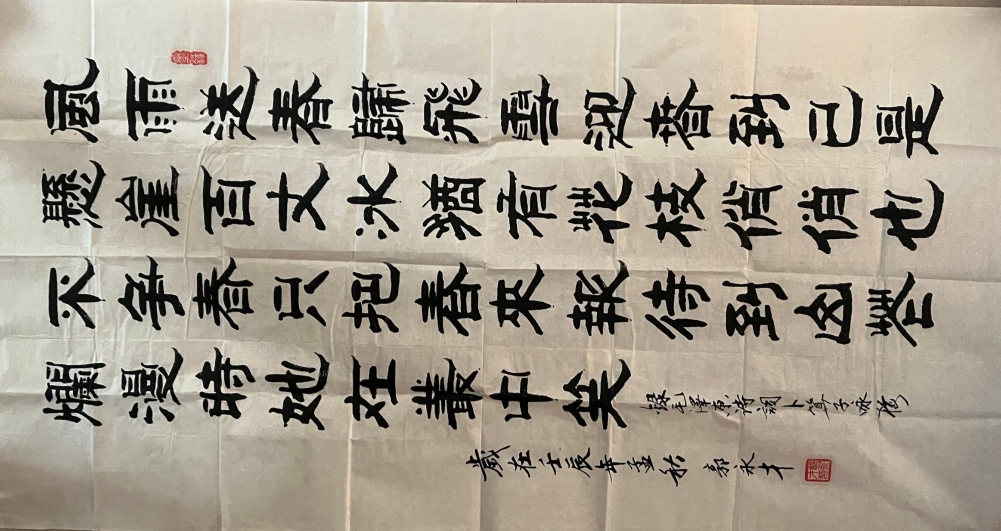 風雨送春歸飛雪迎春到已是
懸崖百丈冰猶有花枝俏俏也
不爭春只把春來報待到山花
爛漫時她在叢中笑
錄毛澤東詩詞卜算子咏梅
歲在壬辰年孟秋 郭永才